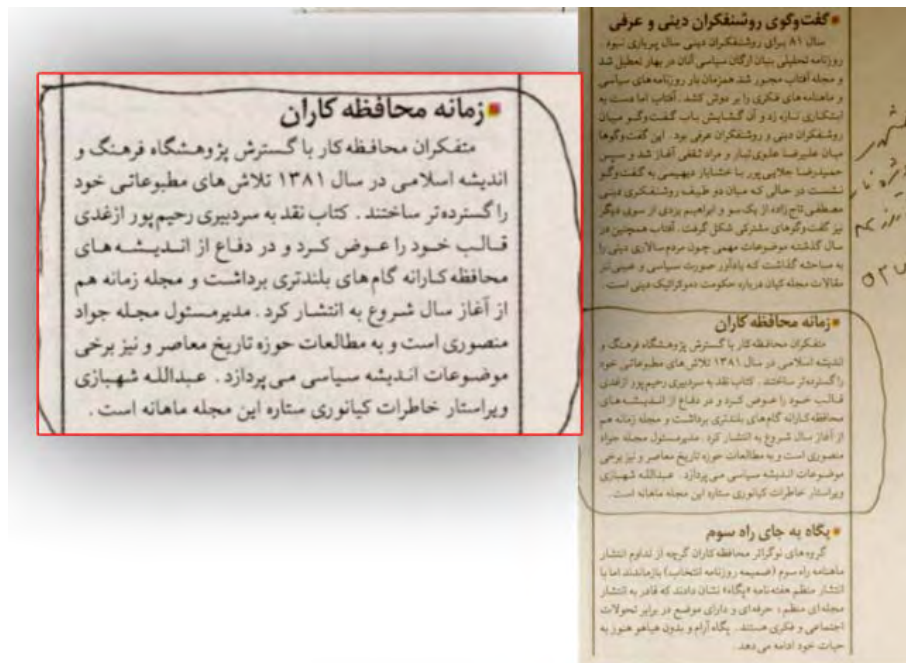 زمانه محافظه کاران
متفکران محافظه کار با گسترش پژوهشگاه فرهنگ و
اندیشه اسلامی در سال ۱۳۸۱ تلاش های مطبوعاتی خود
را گسترده تر ساختند . کتاب نقد به سردبیری رحیم پور ازغدی
قالب خود را عوض کرد و در دفاع از اندیشه های
محافظه کارانه گام های بلندتری برداشت و مجله زمانه هم
از آغاز سال شروع به انتشار کرد . مدیرمسئول مجله جواد
منصوری است و به مطالعات حوزه تاریخ معاصر و نیز برخی
موضوعات اندیشه سیاسی می پردازد . عبدالله شهبازی
ویراستار خاطرات کیانوری ستاره این مجله ماهانه است .
گفت وگوی روشنفکران دینی و عرفی
سال ۸۱ برای روشنفکران دینی سال پرباری نبود .
روزنامه تحلیلی بنیان ارگان سیاسی آنان در بهار تعطیل شد
و مجله آفتاب مجبور شد همزمان بار روزنامه های سیاسی
و ماهنامه های فکری را بر دوش کشد . آفتاب اما دست به
ابتکاری تازه زد و آن گشایش باب گفت وگو میان
روشنفکران دینی و روشنفکران عرفی بود . این گفت وگوها
میان علیرضا علوی تبار و مراد ثقفی آغاز شد و سپس
حمیدرضا جلایی پور با خشایار دیهیمی به گفت وگو
نشست در حالی که میان دو طیف روشنفکری دینی
مصطفی تاج زاده از یک سو و ابراهیم یزدی از سوی دیگر
نیز گفت وگوهای مشترکی شکل گرفت . آفتاب همچنین در
سال گذشته موضوعات مهمی چون مردم سالاری دینی را
به مباحثه گذاشت که یادآور صورت سیاسی و عینی تر
مقالات مجله کیان درباره حکومت دموکراتیک دینی است .
زمانه محافظه کاران
متفکران محافظه کار با گسترش پژوهشگاه فرهنگ و
اندیشه اسلامی در سال ۱۳۸۱ تلاش های مطبوعاتی خود
را گسترده تر ساختند . کتاب نقد به سردبیری رحیم پور ازغدی
قالب خود را عوض کرد و در دفاع از اندیشه های
محافظه کارانه گام های بلندتری برداشت و مجله زمانه هم
از آغاز سال شروع به انتشار کرد . مدیرمسئول مجله جواد
منصوری است و به مطالعات حوزه تاریخ معاصر و نیز برخی
موضوعات اندیشه سیاسی می پردازد . عبدالله شهبازی
ویراستار خاطرات کیانوری ستاره این مجله ماهانه است .
پگاه به جای راه سوم
گروه های نوگراتر محافظه کاران گرچه از تداوم انتشار
ماهنامه راه سوم (ضمیمه روزنامه انتخاب) بازماندند اما با
انتشار منظم هفته نامه «پگاه» نشان دادند که قادر به انتشار
مجله ای منظم ، حرفه ای و دارای موضع در برابر تحولات
اجتماعی و فکری هستند . پگاه آرام و بدون هیاهو هنوز به
حیات خود ادامه می دهد .